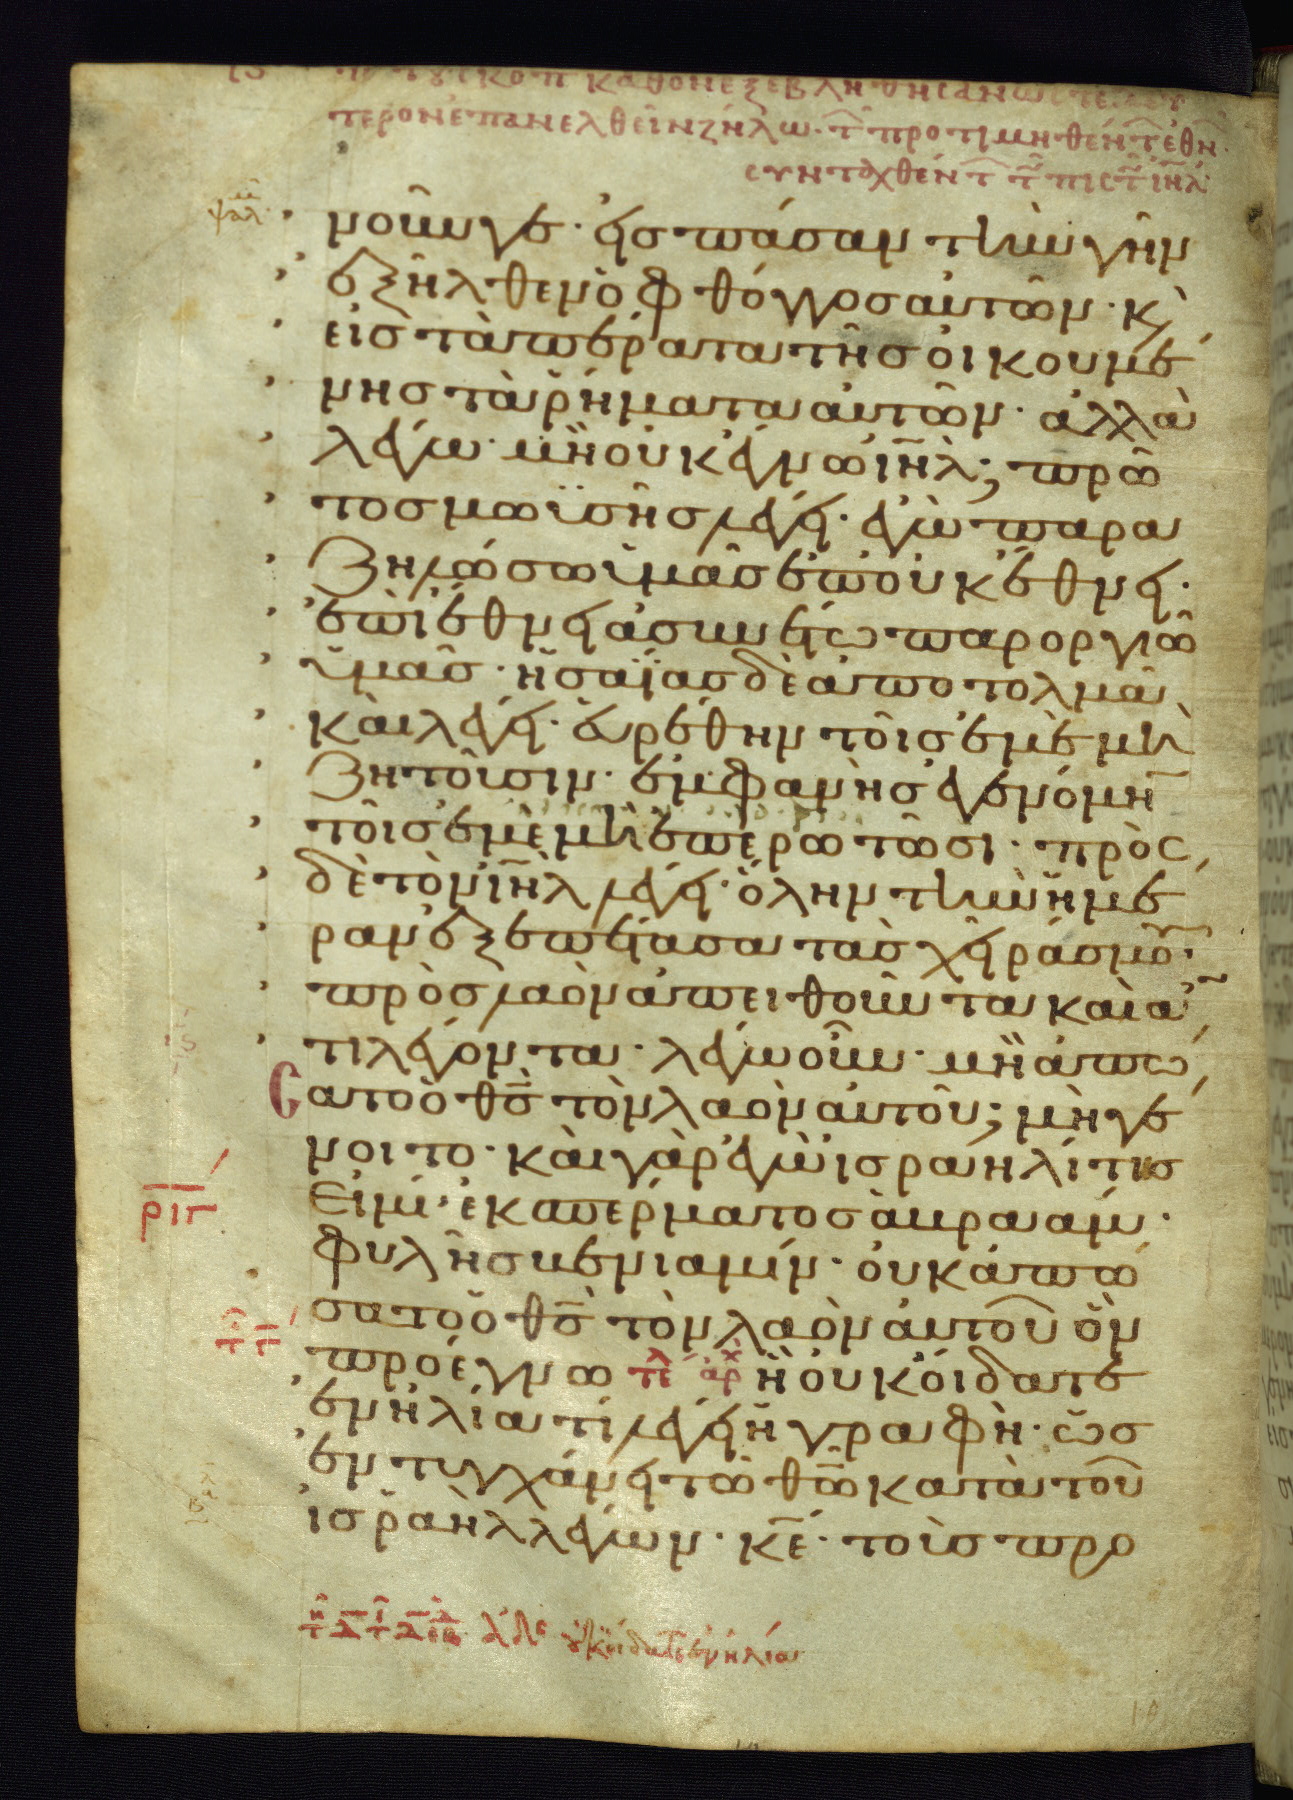 τοῦ σκοπ καθ ὃν ἐξεβλήθησαν ὥστε δεύ
τερον ἐπανελθεῖν ζήλω τ̑ προτιμηθέντ̑ ἐθν̑
συνταχθέντ̑ τ̑ πιστ̑ ἰη̅λ
ψαλ
μοῦν γε· εἰς πᾶσαν τὴν γῆν
ἐξῆλθεν ὁ φθόγγος αὐτῶν· κ̀
εἰς τὰ πέρατα τῆς οἰκουμέ
νης τὰ ῥήματα αὐτῶν· ἀλλὰ
λέγω· μὴ οὐκ ἔγνω ἰη̅λ; πρῶ
τος μωϋσῆς λέγει· ἐγὼ παρα
ζηλώσω ὑμᾶς ἐπ' οὐκ ἔθνει·
ἐπὶ ἔθνει ἀσυνέτω παροργιῶ
ὑμᾶς· ἡσαΐας δὲ ἀποτολμᾶ
καὶ λέγει· εὑρέθην τοῖς ἐμὲ μὴ
ζητοῦσιν· ἐμφανὴς ἐγενόμη̅
τοῖς ἐμὲ μὴ ἐπερωτῶσι· πρὸς
δὲ τὸν ἰη̅λ λέγει· ὅλην τὴν ἡμέ
ραν ἐξεπέτασα τὰς χεῖράς μου·
πρὸς λαὸν ἀπειθοῦντα καὶ ἀ̅
τιλέγοντα· λέγω οὖν· μὴ ἀπώ
σατο ὁ θ̅ς τὸν λαὸν αὐτοῦ; μὴ γέ
νοιτο· καὶ γὰρ ἐγὼ ἰσραηλίτης
εἰμί· ἐκ σπέρματος ἀβραάμ·
ρ̅ι̅γ̅
φυλῆς βενιαμίν· οὐκ ἀπώ
σατο ὁ θ̅ς τὸν λαὸν αὐτοῦ ὃν
προέγνω τέλ ἀρχ ἢ οὐκ οἴδατε
ἐν ἠλία τί λέγει ἡ γραφή· ὡς
ἐντυγχάνει τῶ θ̅ω κατὰ τοῦ
ἰσραὴλ λέγων· κ̅ε· τοὺς προ
ἀδε οὐκ οἴδατε ἐν ἠλία